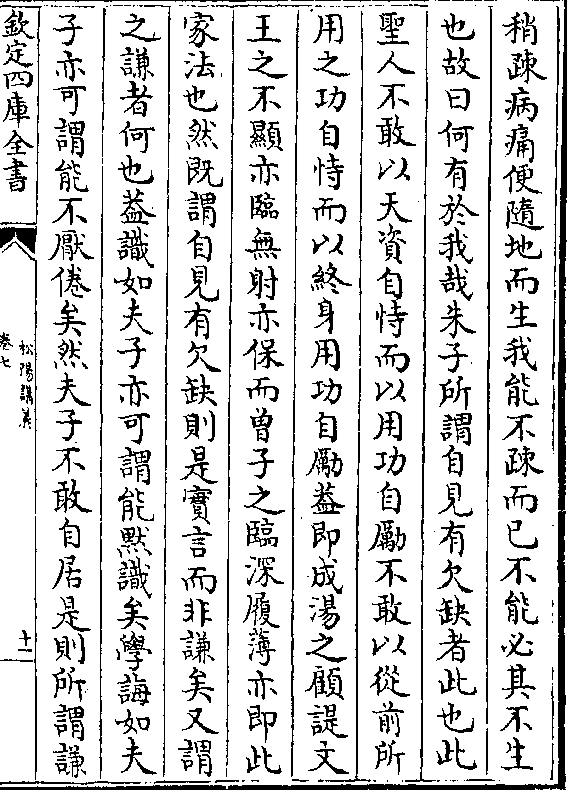 稍疎病痛便隨地而生我能不疎而已不能必其不生
也故曰何有於我哉朱子所謂自見有欠缺者此也此
聖人不敢以天資自恃而以用功自勵不敢以從前所
用之功自恃而以終身用功自勵葢即成湯之顧諟文
王之不顯亦臨無射亦保而曾子之臨深履薄亦即此
家法也然既謂自見有欠缺則是實言而非謙矣又謂
之謙者何也葢識如夫子亦可謂能黙識矣學誨如夫
子亦可謂能不厭倦矣然夫子不敢自居是則所謂謙
欽定四庫全書
松陽講義
卷七
十一